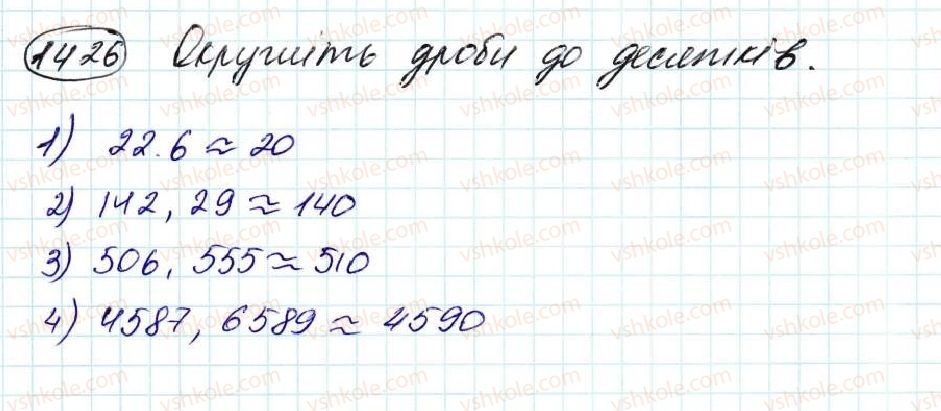 1426 Округліть дроби до десятків.
1) 22.6 ≈ 20
2) 142, 29 ≈ 140
3) 506, 555 ≈ 510
4) 4587, 6589 ≈ 4590